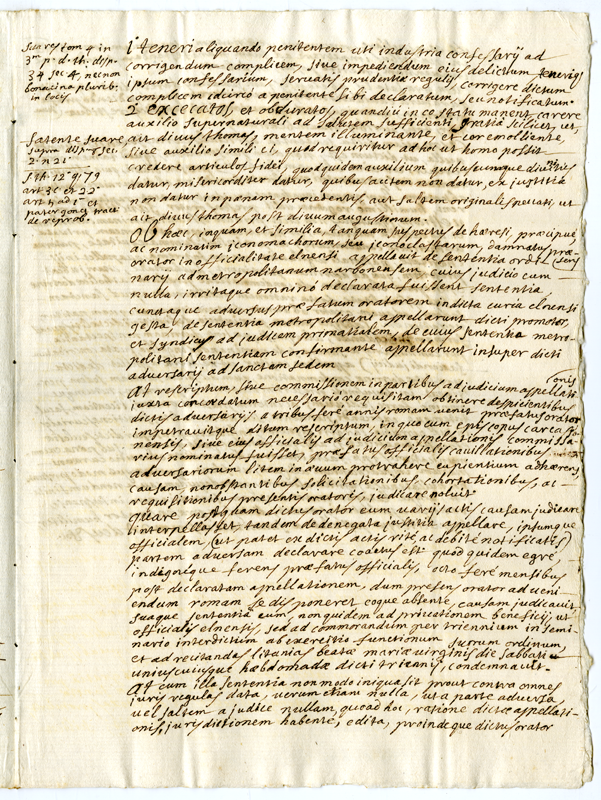 Suares tom 4 in
3m p. d. th. disp.
34 sec 4, nec non
bonacina plurib.
in locis.
fatente Suare
supra disp. 9 sec.
2 n 21
S. th. 12 q. 79
art 3 c et 22
art 5 ad 1 et
pater gonet tract
de reprob.
i teneri aliquando penitentem uti industria confessarij ad
corrigendum complicem, sive impediendum ejus delictum, tenerique
ipsum confessarium, servatis prudentiæ regulis, corrigere dictum
complicem idcirco a penitente sibi declaratum, seu notificatum.
2 excecatos, et obduratos, quandiu in eo statu manent, carere
auxilio supernaturali ad salutem sufficienti, gratia scilicet, ut,
ait divus thomas, mentem illuminante, et cor emolliente,
sive auxilio simili ei, quod requiritur ad hoc ut homo possit
credere articulos fidei, quod quidem auxilium quibuscunque divinitus
datur, misericorditer datur, quibus autem non datur, ex justitia
non datur in pœnam præcedentis, aut saltem originalis peccati, ut
ait divus thomas post divum augustinum.
Ob hæc, inquam, et similia, tanquam suspectus de hæresi, præcipue,
ac nominatim iconomachorum, seu iconoclastarum, damnatus præsens
orator in officialitate elnensi appellavit de sententia ordi-
narij ad metropolitanum narbonensem, cujus judicio cum
nulla, irritaque omnino declarata fuissent sententia
cunctaque adversus præfatum oratorem in dicta curia elnensi
gesta, de sententia metropolitani appellarunt dicti promotor,
et syndicus ad judicem primatialem, de cujus sententia metro-
politani sententiam confirmante appellarunt insuper dicti
adversarij ad sanctam sedem
At rescriptum, sive commissionem in partibus ad judicium appellationis
juxta concordatum necessario requisitam obtinere despicientibus
dictis adversarijs a tribus fere annis romam venit præfatus orator
impetravitque dictum rescriptum, in quo cum episcopus carcasso-
nensis, sive ejus officialis ad judicium appellationis commissa-
rius nominatus fuisset, præfatus officialis cavillationibus
adversariorum litem in ævum protrahere cupientium adhærens
causam, non obstantibus solicitationibus, cohortationibus, ac
requisitionibus præsentis oratoris, judicare noluit
quare postquam dictus orator eum varijs actis causam judicare
interpellasset, tandem de denegata justitia appellare, ipsumque
officialem (ut patet ex dictis actis rite, ac debite notificatis)
partem adversam declarare coactus est quod quidem egre,
indigneque ferens præfatus officialis, octo fere mensibus
post declaratam appellationem, dum presens orator ad veni-
endum romam se disponeret eoque absente, causam judicavit,
suaque sententia eum, non quidem ad privationem beneficij, ut
officialis elnensis, sed ad commorandum per triennium in semi-
nario interdictum ab exercitio functionum suorum ordinum,
et ad recitanda litania beatæ mariæ virginis die sabbati
uniuscujusque hebdomadæ dicti triennij, condemnavit.
At cum illa sententia non modo iniqua sit prout contra omnes
juris regulas data, verum etiam nulla, ut a parte adversa,
vel saltem a judice nullam, quoad hoc, ratione dictæ appellati-
onis, jurisdictionem habente, edita, proindeque dictus orator